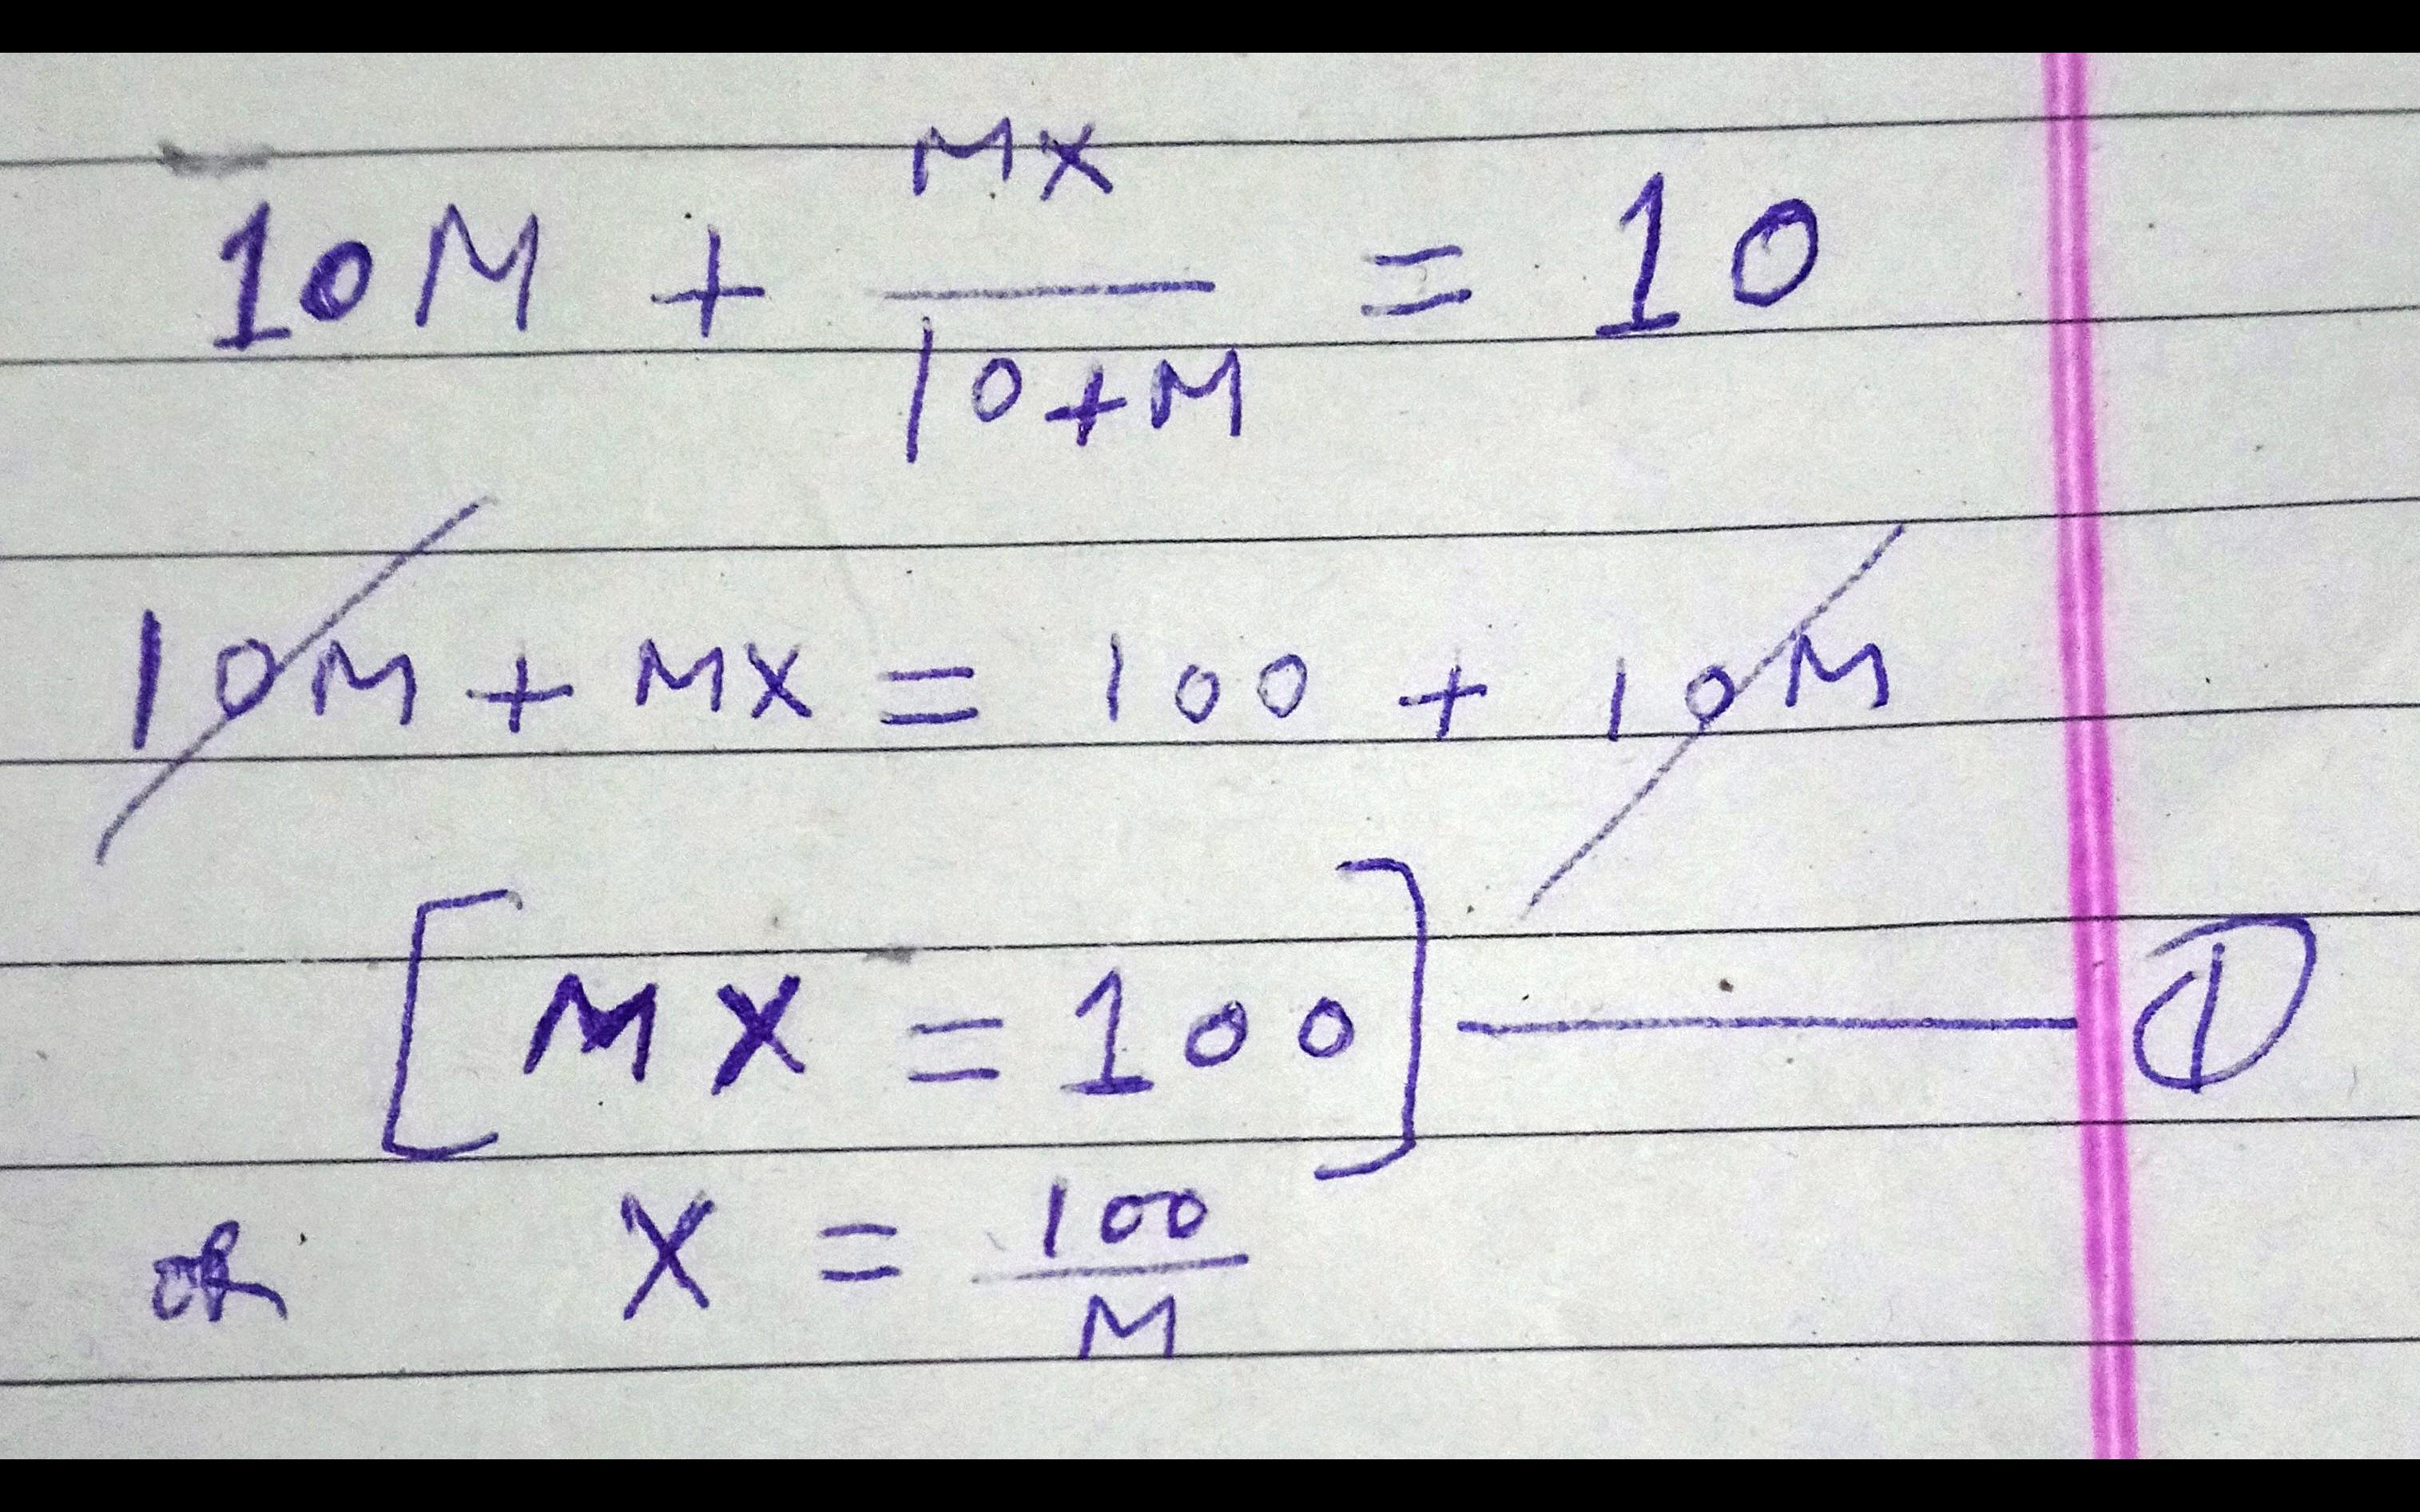 10M + MX / 10+M = 10
10M + MX = 100 + 10M
[MX = 100] ——— ①
or X = 100 / M